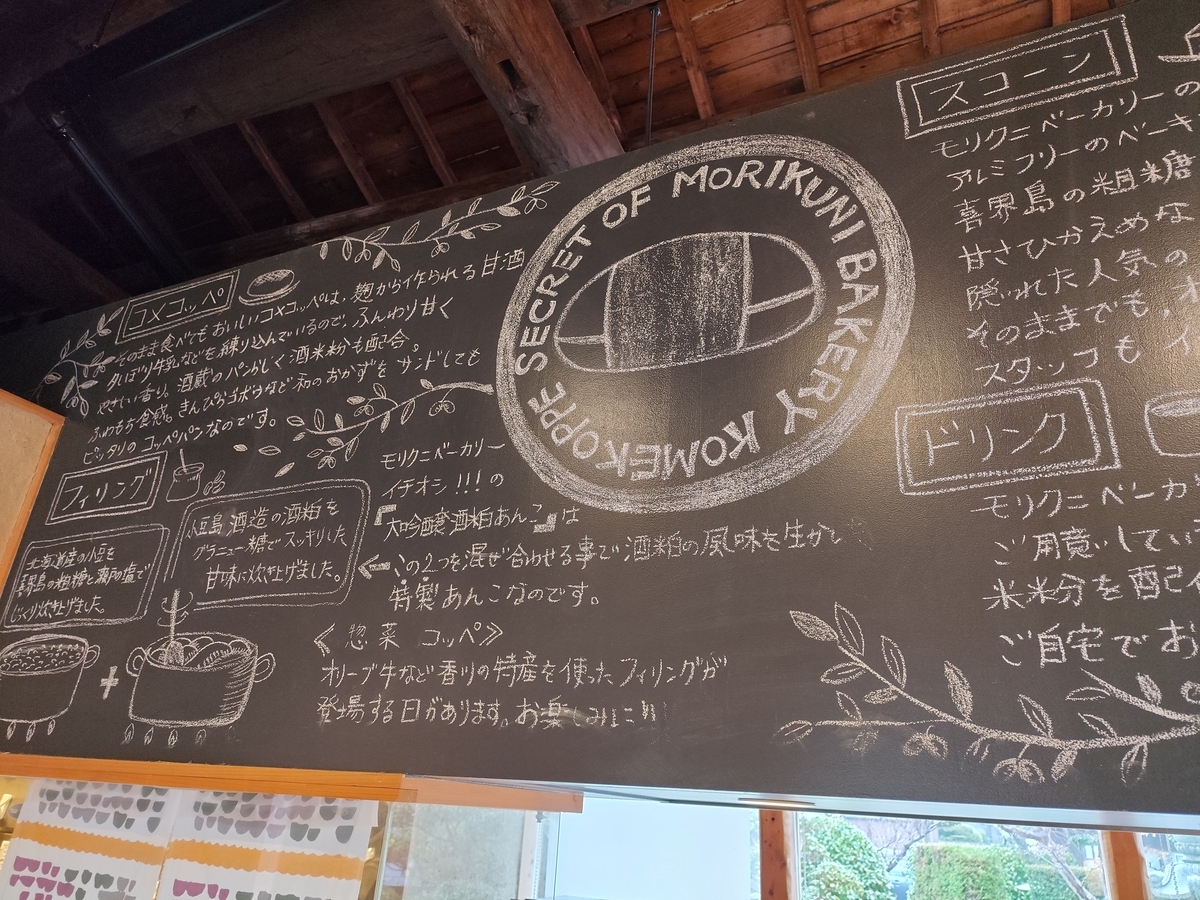 コメコッペ
そのまま食べてもおいしいコメコッペは、麹から作られる甘酒
夕しぼり牛乳などを練り込んでいるので、ふんわり甘く
やさしい香り。酒蔵のパンらしく酒米粉も配合。
ふわもち食感。きんぴらゴボウなど和のおかずをサンドしても
ピッタリのコッペパンなのです。
SECRET OF MORIKUNI BAKERY KOMEKOPPE
フィリング
北海道産の小豆を
喜界島の粗糖と瀬戸の塩で
じっくり炊き上げました。
小豆島酒造の酒粕を
グラニュー糖でスッキリした
甘味に炊き上げました。
モリクニベーカリー
イチオシ!!!の
『大吟醸酒粕あんこ』は
この2つを混ぜ合わせる事で酒粕の風味を生かし
特製あんこなのです。
+
≪惣菜 コッペ≫
オリーブ牛など香川の特産を使ったフィリングが
登場する日があります。お楽しみに!!
スコーン
モリクニベーカリーの
アルミフリーのベーキ
喜界島の粗糖
甘さひかえめな
隠れた人気の
そのままでも、
スタッフも イ
ドリンク
モリクニベーカ
ご用意してい
米米分を配合
ご自宅でお